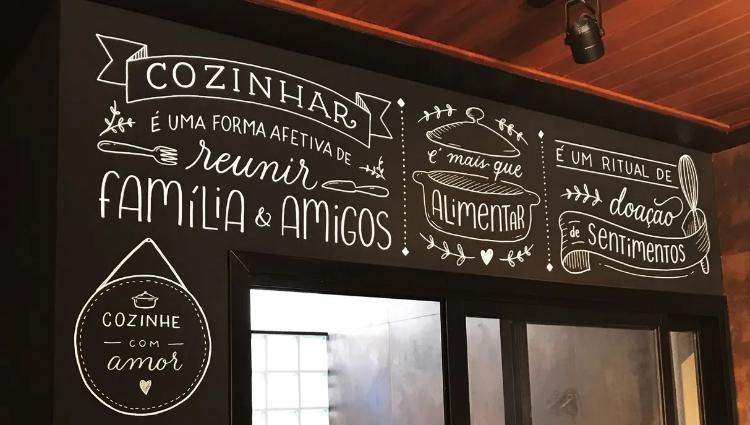 COZINHAR
É UMA FORMA AFETIVA DE
reunir
FAMÍLIA & AMIGOS
é mais que
ALIMENTAR
É UM RITUAL DE
doação
de SENTIMENTOS
COZINHE
COM
amor